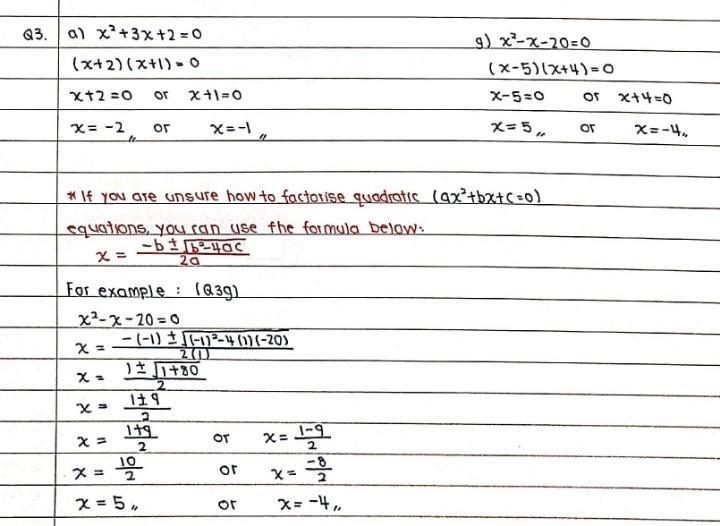 Q3. a) x²+3x+2=0
(x+2)(x+1)=0
x+2=0 or x+1=0
x= -2,, or x=-1,,
g) x²-x-20=0
(x-5)(x+4)=0
x-5=0 or x+4=0
x=5,, or x=-4,,
* If you are unsure how to factorise quadratic (ax²+bx+c=0)
equations, you can use the formula below:
x = (-b ± √(b²-4ac))/2a
For example : (Q3g)
x²-x-20=0
x = (-(-1) ± √((-1)²-4(1)(-20)))/2(1)
x = (1 ± √(1+80))/2
x = (1±9)/2
x = (1+9)/2 or x= (1-9)/2
x = 10/2 or x = -8/2
x = 5,, or x= -4,,